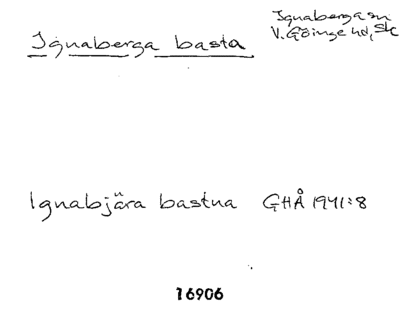 Ignaberga basta
Ignaberga sn
V. Göinge hd, Sk
Ignabjära bastna GHÅ 1941:8
16906